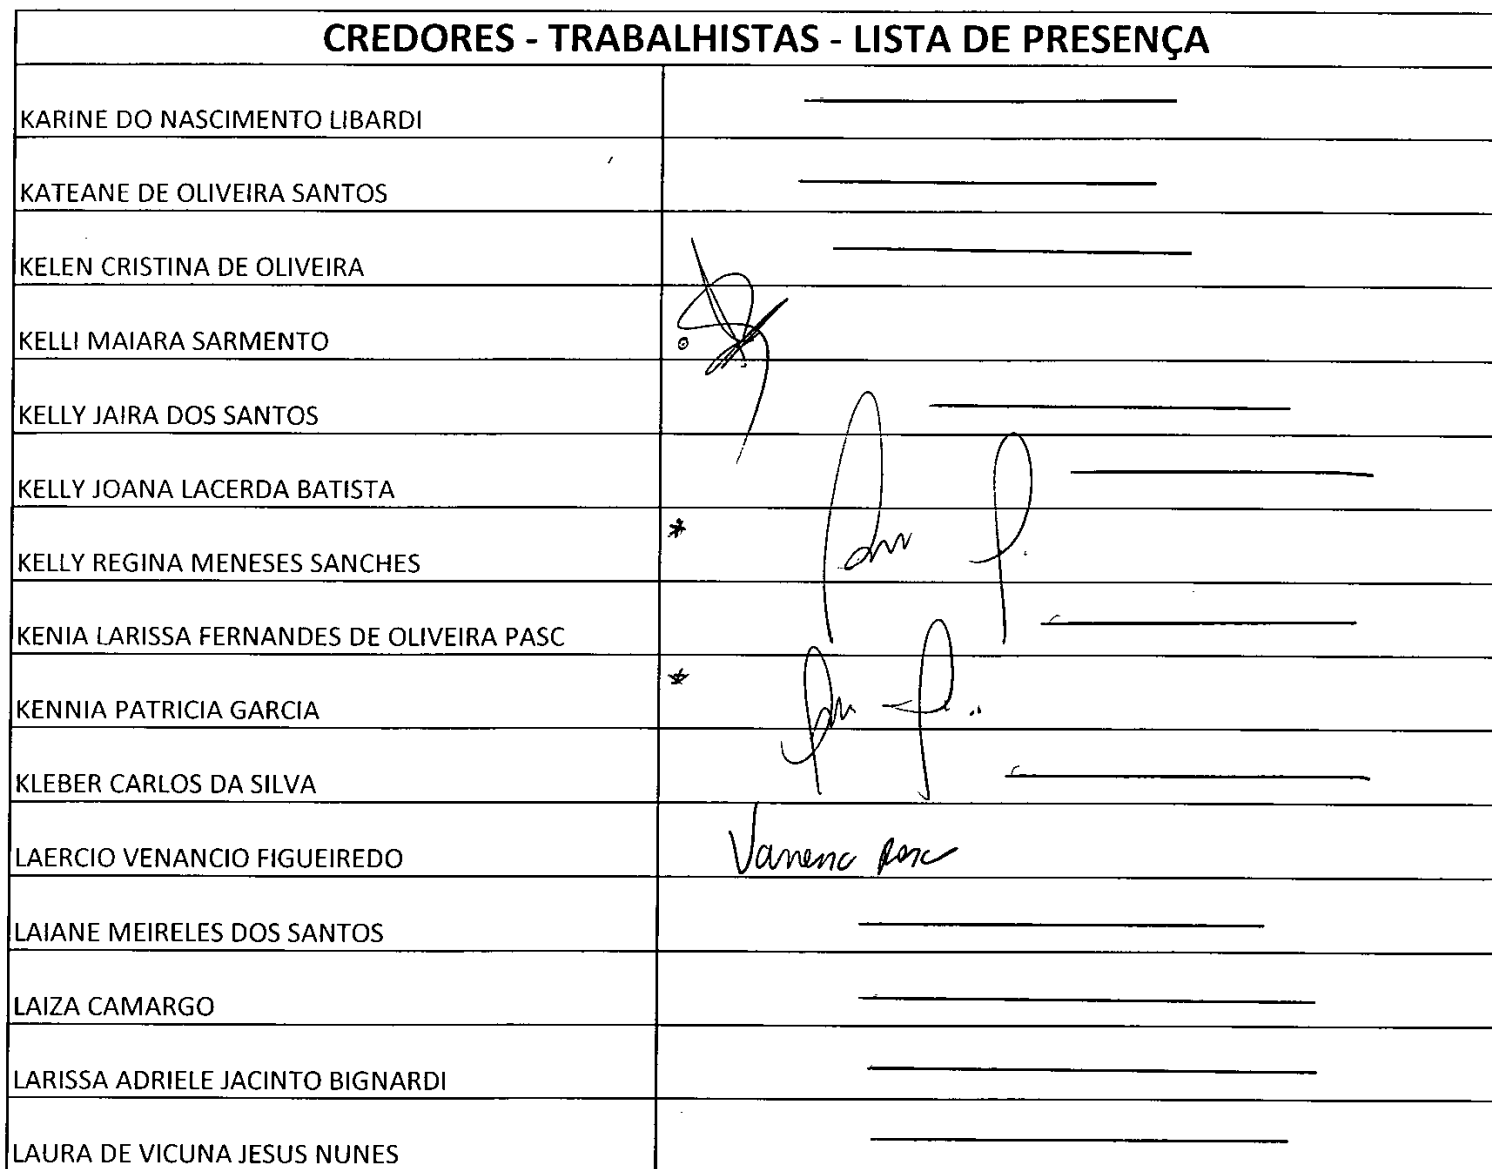 CREDORES - TRABALHISTAS - LISTA DE PRESENÇA
KARINE DO NASCIMENTO LIBARDI
KATEANE DE OLIVEIRA SANTOS
KELEN CRISTINA DE OLIVEIRA
KELLI MAIARA SARMENTO
KELLY JAIRA DOS SANTOS
KELLY JOANA LACERDA BATISTA
KELLY REGINA MENESES SANCHES *
KENIA LARISSA FERNANDES DE OLIVEIRA PASC
KENNIA PATRICIA GARCIA *
KLEBER CARLOS DA SILVA
LAERCIO VENANCIO FIGUEIREDO
LAIANE MEIRELES DOS SANTOS
LAIZA CAMARGO
LARISSA ADRIELE JACINTO BIGNARDI
LAURA DE VICUNA JESUS NUNES